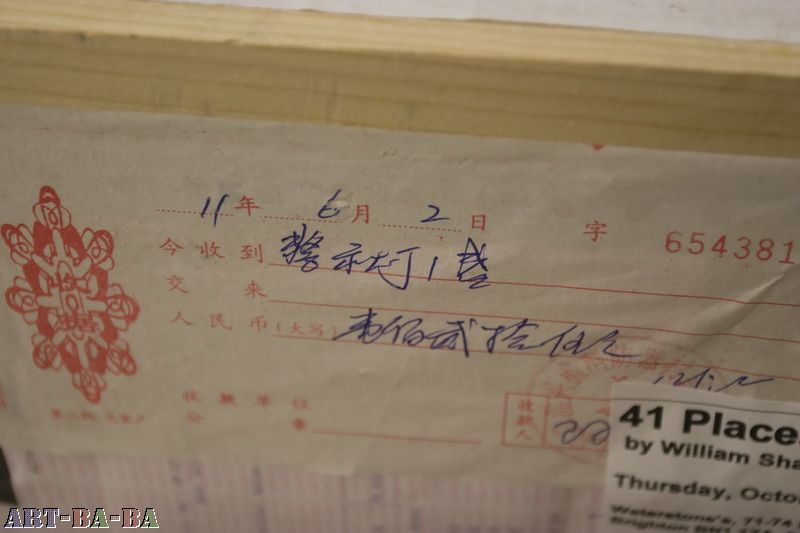 11年 6月 2日 字 654381
今收到 警示灯1盏
交来
人民币(大写) 壹佰贰拾伍元
收款单位
公章
收款人
第二联
41 Place
by William Sha
Thursday, Octo
Waterstone's, 71-74
Brighton BN1
ART-BA-BA